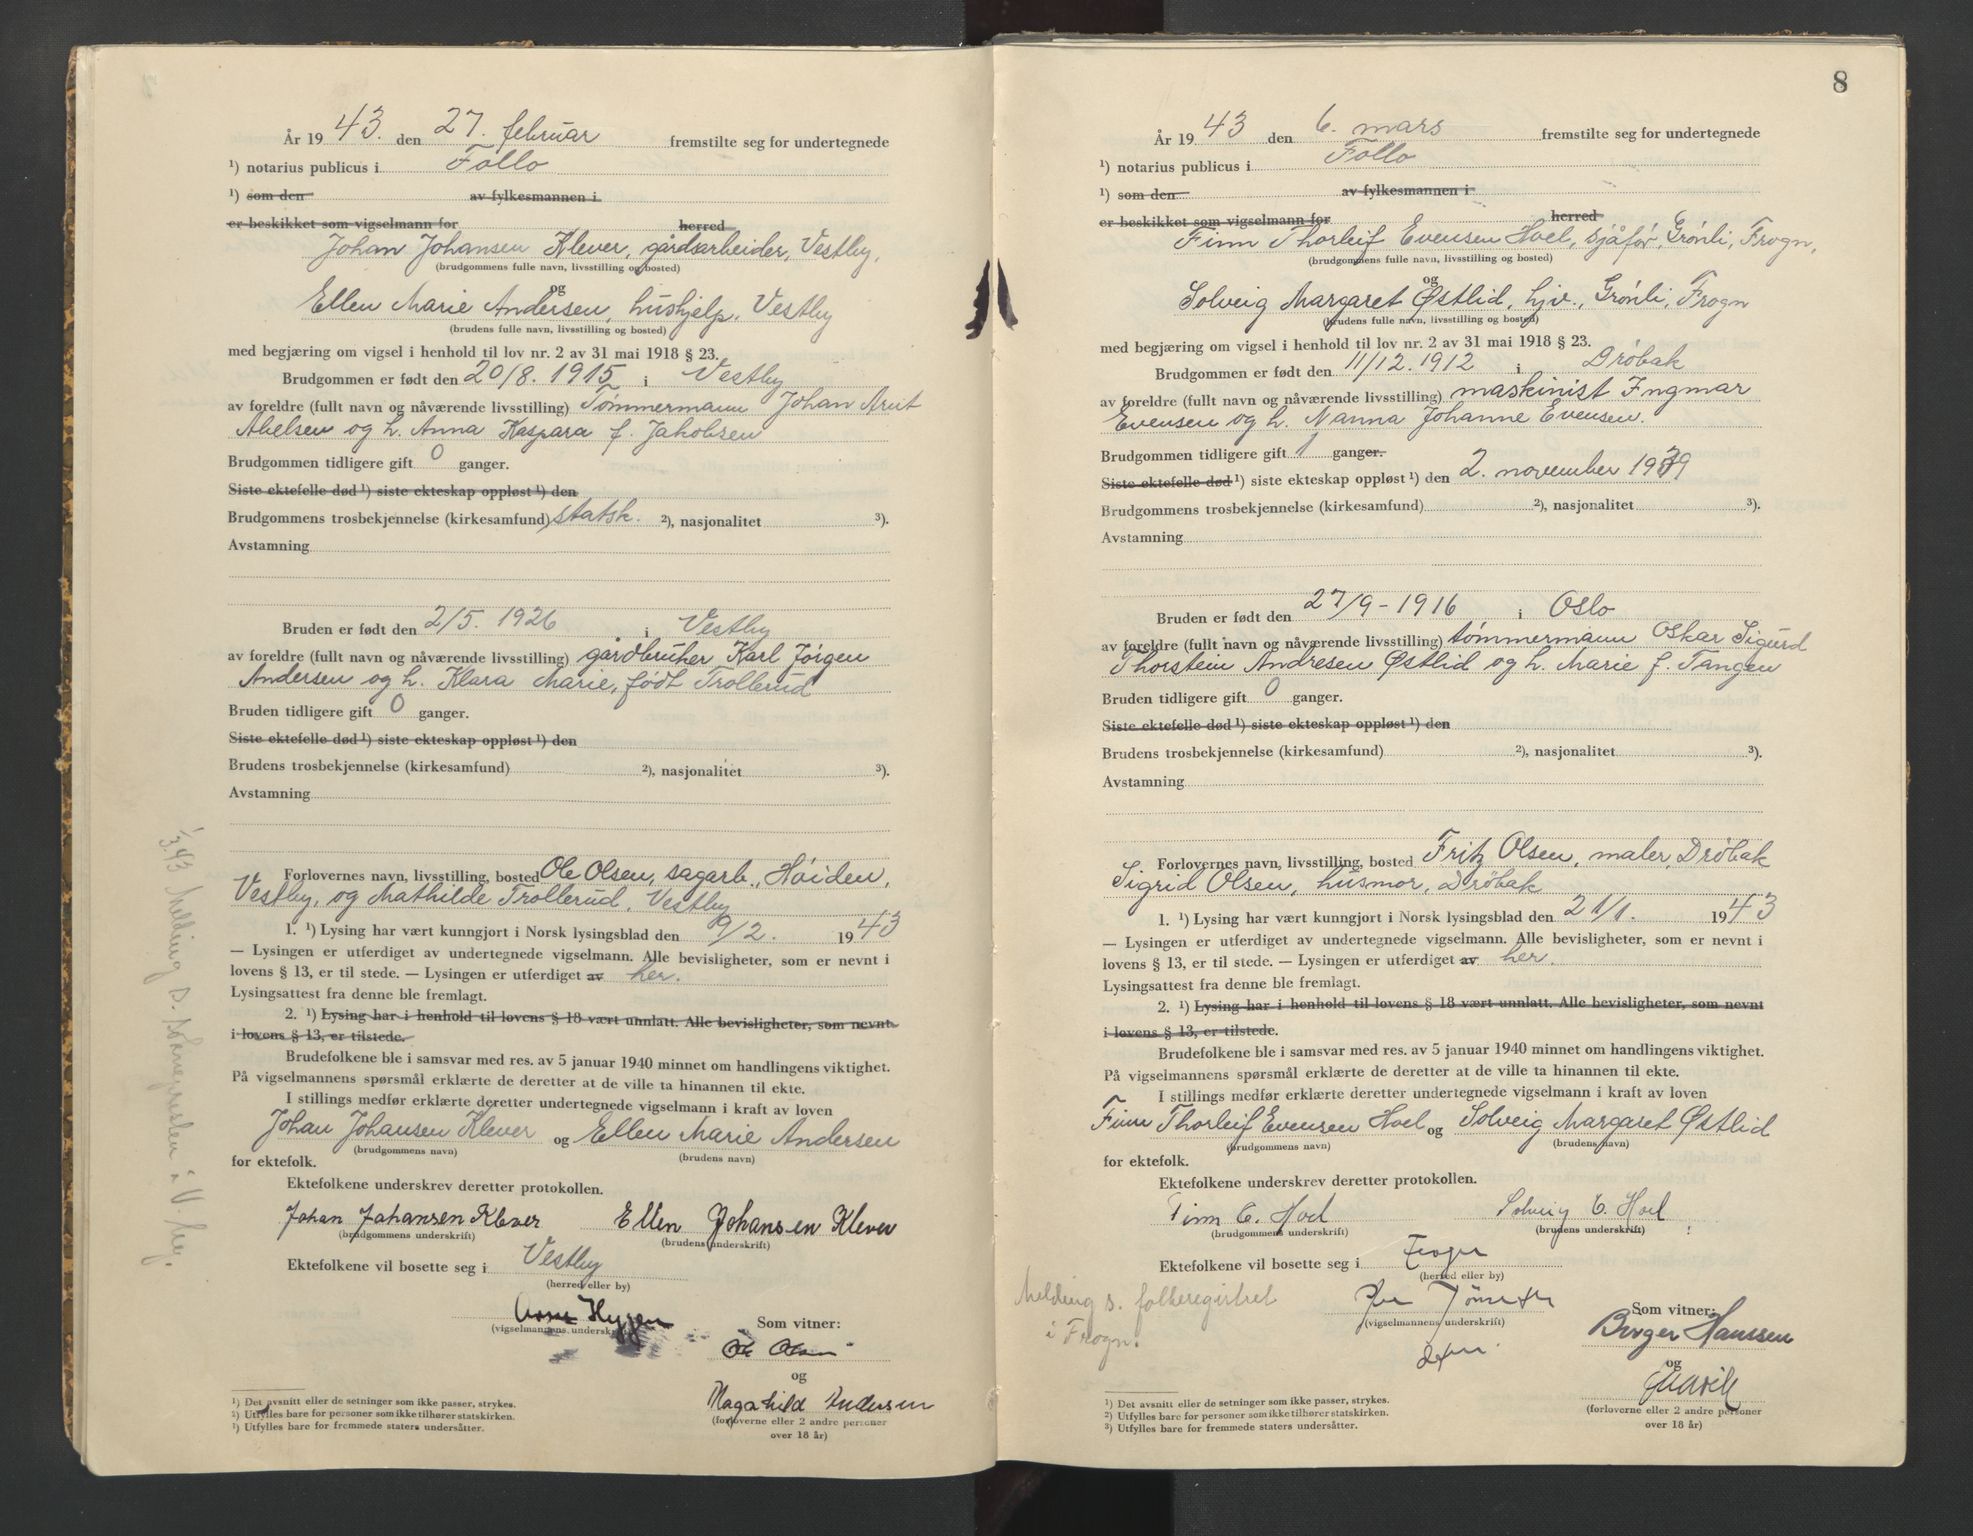 År 19 43. den 27. februar fremstilte seg for undertegnede
¹) notarius publicus i Follo
¹) som den av fylkesmannen i
er beskikket som vigselmann for herred
Johan Johansen Klever, gårdsarbeider, Vestby,
(brudgommens fulle navn, livsstilling og bosted)
og
Ellen Marie Andersen, hushjelp, Vestby
(brudens fulle navn, livsstilling og bosted)
med begjæring om vigsel i henhold til lov nr. 2 av 31 mai 1918 § 23.
Brudgommen er født den 20/8. 1915 i Vestby
av foreldre (fullt navn og nåværende livsstilling) Tømmermann Johan Arnt
Abelsen og h. Anna Kaspara f. Jakobsen
Brudgommen tidligere gift 0 ganger.
Siste ektefelle død ¹) siste ekteskap oppløst ¹) den
Brudgommens trosbekjennelse (kirkesamfund) statsk. ²), nasjonalitet ³).
Avstamning
Bruden er født den 2/5. 1926 i Vestby
av foreldre (fullt navn og nåværende livsstilling) gårdbruker Karl Jörgen
Andersen og h. Klara Marie, født Trollerud
Bruden tidligere gift 0 ganger.
Siste ektefelle død ¹) siste ekteskap oppløst ¹) den
Brudens trosbekjennelse (kirkesamfund) ²), nasjonalitet ³).
Avstamning
Forlovernes navn, livsstilling, bosted Ole Olsen, sagarb., Höiden,
Vestby, og Mathilde Trollerud, Vestby
1. ¹) Lysing har vært kunngjort i Norsk lysingsblad den /2. 19 43
— Lysingen er utferdiget av undertegnede vigselmann. Alle bevisligheter, som er nevnt i
lovens § 13, er til stede. — Lysingen er utferdiget av her.
Lysingsattest fra denne ble fremlagt.
2. ¹) Lysing har i henhold til lovens § 18 vært unnlatt. Alle bevisligheter, som nevnt
i lovens § 13, er tilstede.
Brudefolkene ble i samsvar med res. av 5 januar 1940 minnet om handlingens viktighet.
På vigselmannens spørsmål erklærte de deretter at de ville ta hinannen til ekte.
I stillings medfør erklærte deretter undertegnede vigselmann i kraft av loven
Johan Johansen Klever og Ellen Marie Andersen
(brudgommens navn) (brudens navn)
for ektefolk.
Ektefolkene underskrev deretter protokollen.
Johan Johansen Klever Ellen Johansen Klever
(brudgommens underskrift) (brudens underskrift)
Ektefolkene vil bosette seg i Vestby
(herred eller by)
Hygen
(vigselmannens underskrift)
Som vitner:
Ole Olsen
og
Magnhild Andersen
(forloverne eller 2 andre personer
over 18 år)
¹) Det avsnitt eller de setninger som ikke passer, strykes.
²) Utfylles bare for personer som ikke tilhører statskirken.
³) Utfylles bare for fremmede staters undersåtter.
1/3.43 Melding s. i V. by.
8
År 19 43 den 6. mars fremstilte seg for undertegnede
¹) notarius publicus i Follo
¹) som den av fylkesmannen i
er beskikket som vigselmann for herred
Finn Thorleif Evensen Hoel, sjåför, Grönli, Frogn,
(brudgommens fulle navn, livsstilling og bosted)
og
Solveig Margaret Østlid, hjv., Grönli, Frogn
(brudens fulle navn, livsstilling og bosted)
med begjæring om vigsel i henhold til lov nr. 2 av 31 mai 1918 § 23.
Brudgommen er født den 11/12. 1912 i Dröbak
av foreldre (fullt navn og nåværende livsstilling) maskinist Ingmar
Evensen og h. Nanna Johanne Evensen.
Brudgommen tidligere gift 1 ganger.
Siste ektefelle død ¹) siste ekteskap oppløst ¹) den 2. november 1939
Brudgommens trosbekjennelse (kirkesamfund) ²), nasjonalitet ³).
Avstamning
Bruden er født den 27/9 - 1916 i Oslo
av foreldre (fullt navn og nåværende livsstilling) tömmermann Oskar Sigurd
Thorstein Andresen Østlid og h. Marie f. Tangen
Bruden tidligere gift 0 ganger.
Siste ektefelle død ¹) siste ekteskap oppløst ¹) den
Brudens trosbekjennelse (kirkesamfund) ²), nasjonalitet ³).
Avstamning
Forlovernes navn, livsstilling, bosted Fritz Olsen, maler, Dröbak
Sigrid Olsen, husmor, Dröbak
1. ¹) Lysing har vært kunngjort i Norsk lysingsblad den 21/1. 19 43
— Lysingen er utferdiget av undertegnede vigselmann. Alle bevisligheter, som er nevnt i
lovens § 13, er til stede. — Lysingen er utferdiget av her.
Lysingsattest fra denne ble fremlagt.
2. ¹) Lysing har i henhold til lovens § 18 vært unnlatt. Alle bevisligheter, som nevnt
i lovens § 13, er tilstede.
Brudefolkene ble i samsvar med res. av 5 januar 1940 minnet om handlingens viktighet.
På vigselmannens spørsmål erklærte de deretter at de ville ta hinannen til ekte.
I stillings medfør erklærte deretter undertegnede vigselmann i kraft av loven
Finn Thorleif Evensen Hoel og Solveig Margaret Østlid
(brudgommens navn) (brudens navn)
for ektefolk.
Ektefolkene underskrev deretter protokollen.
Finn E. Hoel Solveig E. Hoel
(brudgommens underskrift) (brudens underskrift)
Ektefolkene vil bosette seg i Frogn
(herred eller by)
Melding s. folkeregistret
i Frogn.
(vigselmannens underskrift)
Som vitner:
Birger Hanssen
og
(forloverne eller 2 andre personer
over 18 år)
¹) Det avsnitt eller de setninger som ikke passer, strykes.
²) Utfylles bare for personer som ikke tilhører statskirken.
³) Utfylles bare for fremmede staters undersåtter.